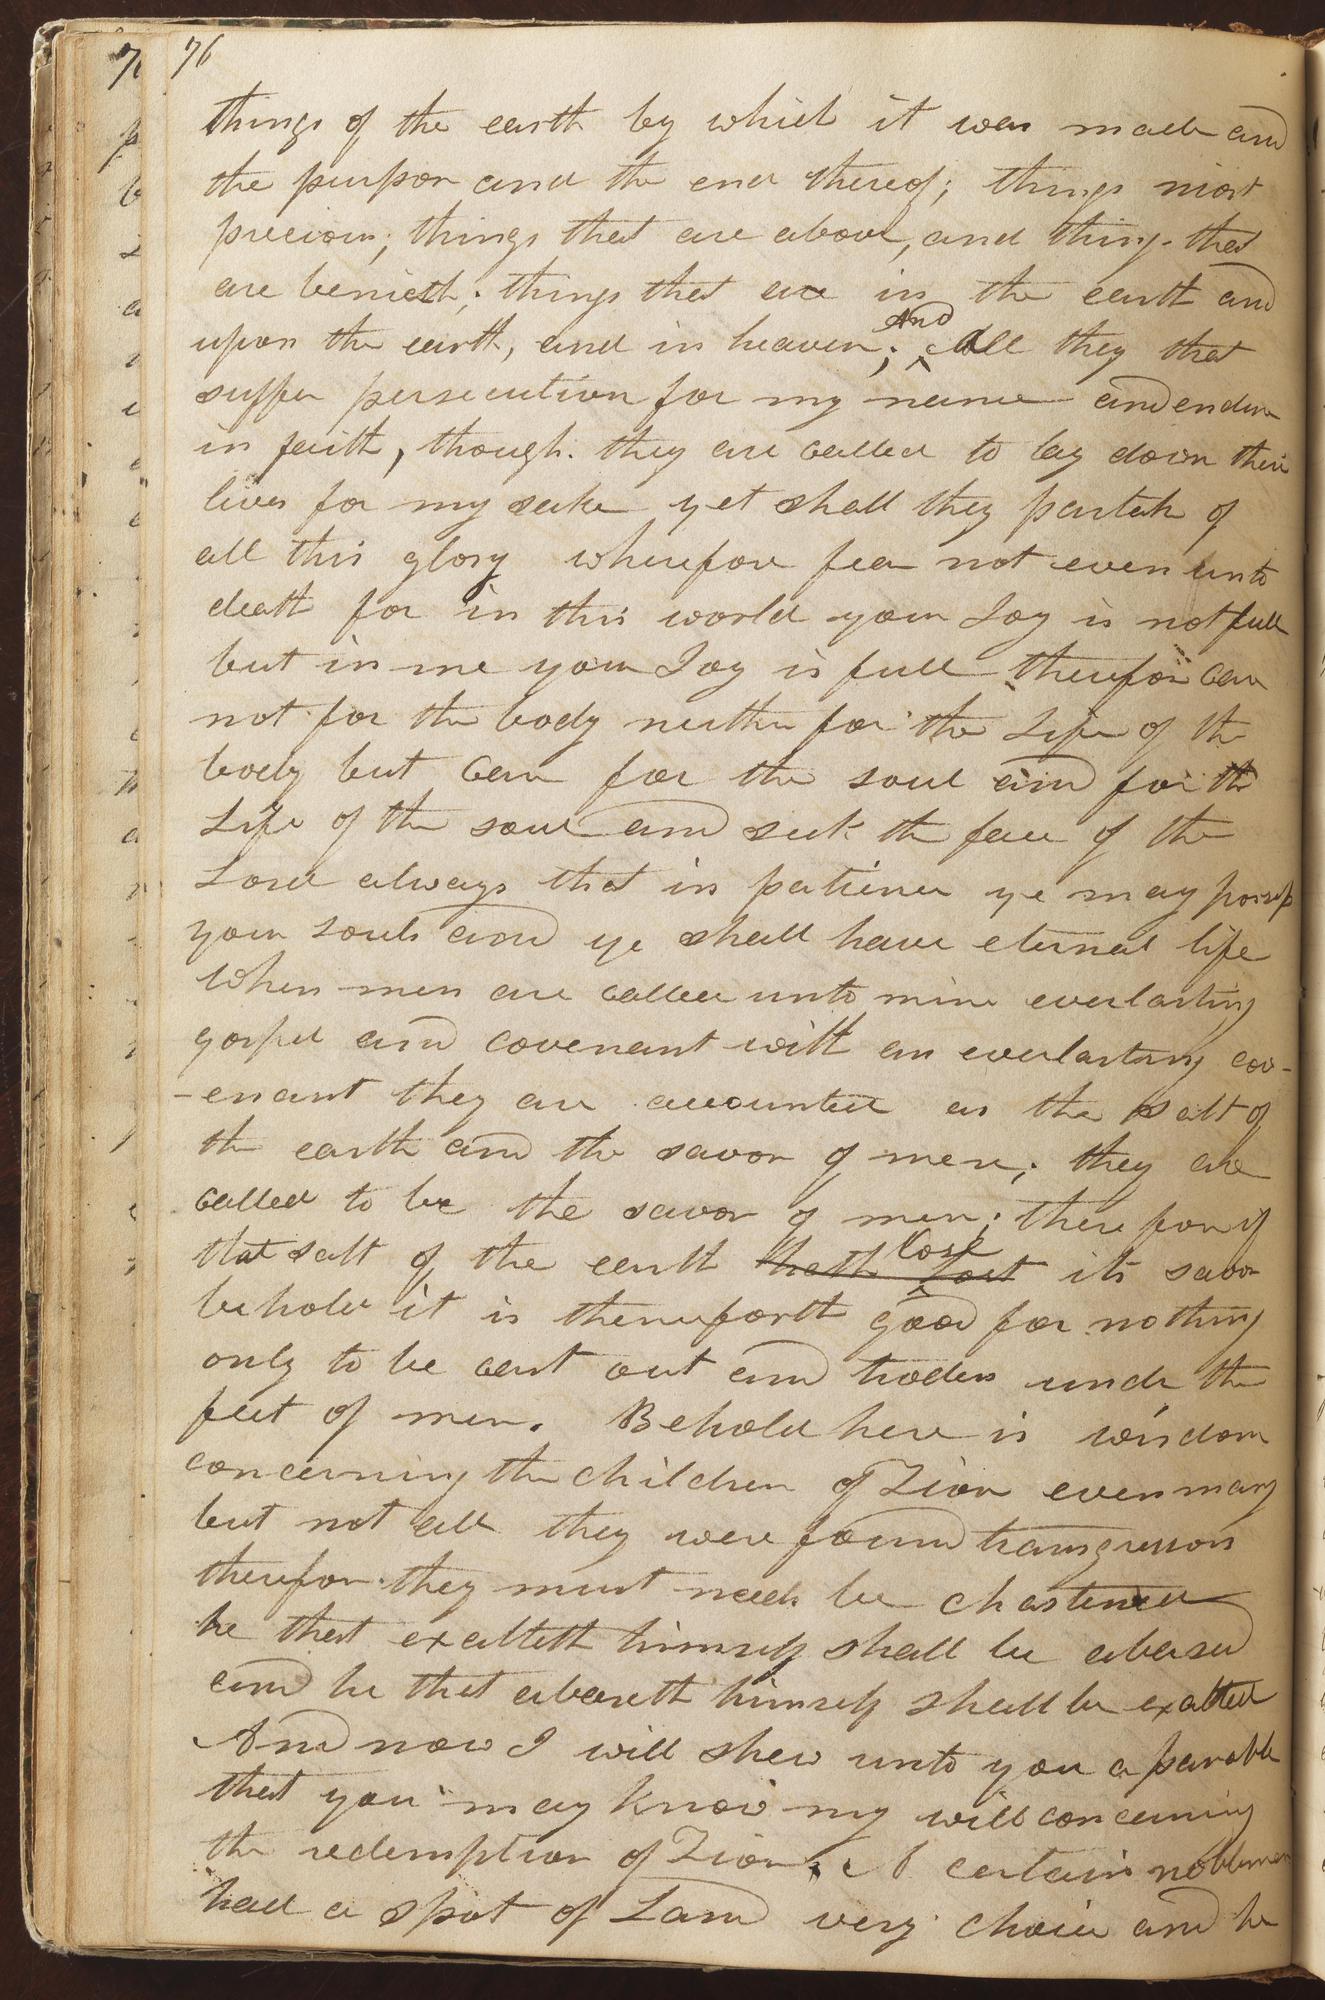 76
things of the earth by which it was made and
the purpose and the end thereof; things most
precious; things that are above, and things that
are benieth; things that are in the earth and
upon the earth, and in heaven; And All they that
suffer persecution for my name and endure
in faith, though they are called to lay down their
lives for my sake yet shall they partake of
all this glory wherefore fear not even unto
death for in this world your Joy is not full
but in me your Joy is full therefore care
not for the body neither for the Life of the
body but care for the soul and for the
Life of the soul and seek the face of the
Lord always that in patience ye may possess
your souls and ye shall have eternal life
When men are called unto mine everlasting
gospel and covenant with an everlasting cov-
-enant they are accounted as the salt of
the earth and the savor of men; they are
called to be the savor of men; therefore if
that salt of the earth hath Lost lose its savor
behold it is thenceforth good for nothing
only to be cast out and troden under the
feet of men. Behold here is wisdom
concerning the children of Zion even many
but not all they were found transgressors
therefore they must needs be chastened
he that exalteth himself shall be abased
and he that abaseth himself shall be exalted
And now I will shew unto you a parable
that you may know my will concerning
the redemption of Zion. A certain nobleman
had a spot of Land very choice and he